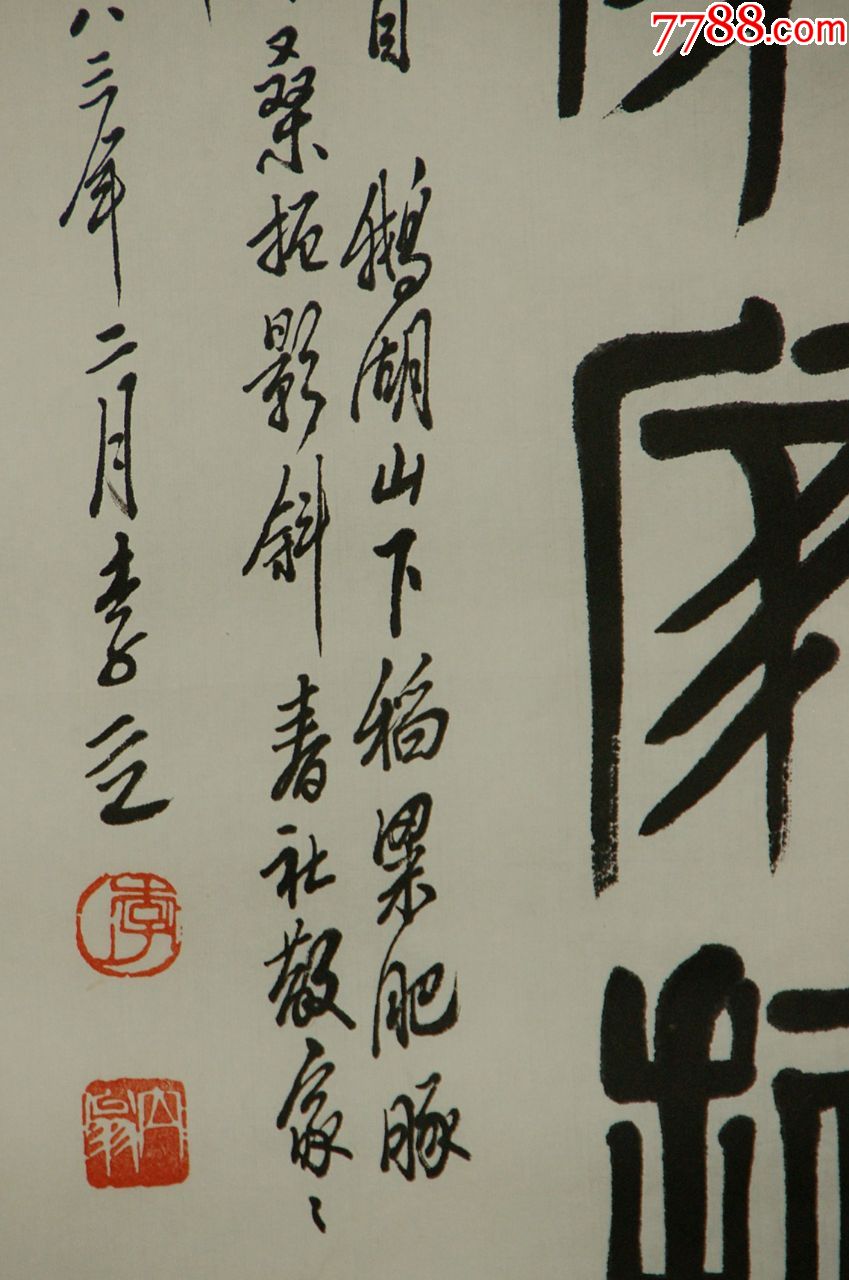 7788.com
家
鵝湖山下稻粱肥豚
桑柘影斜春社散家〻
八三年二月李立
李